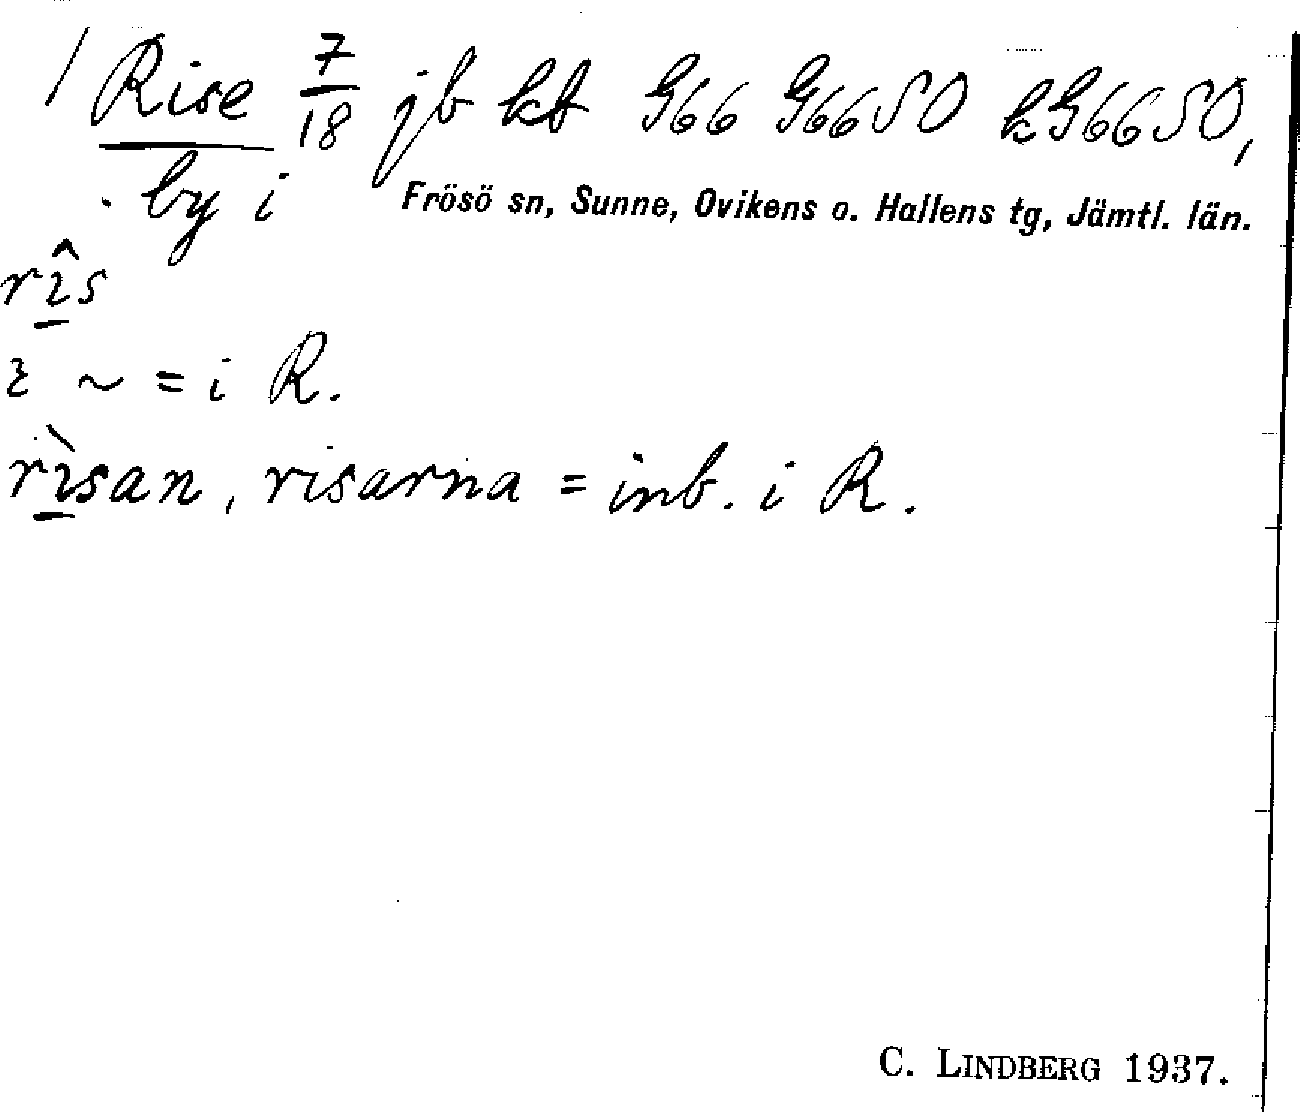 / Rise 7/18 jb kt G66 G6650 kG6650,
by i Frösö sn, Sunne, Ovikens o. Hallens tg, Jämtl. län.
rîs
i ~ = i R.
rìsan, risarna = inb. i R.
C. LINDBERG 1937.